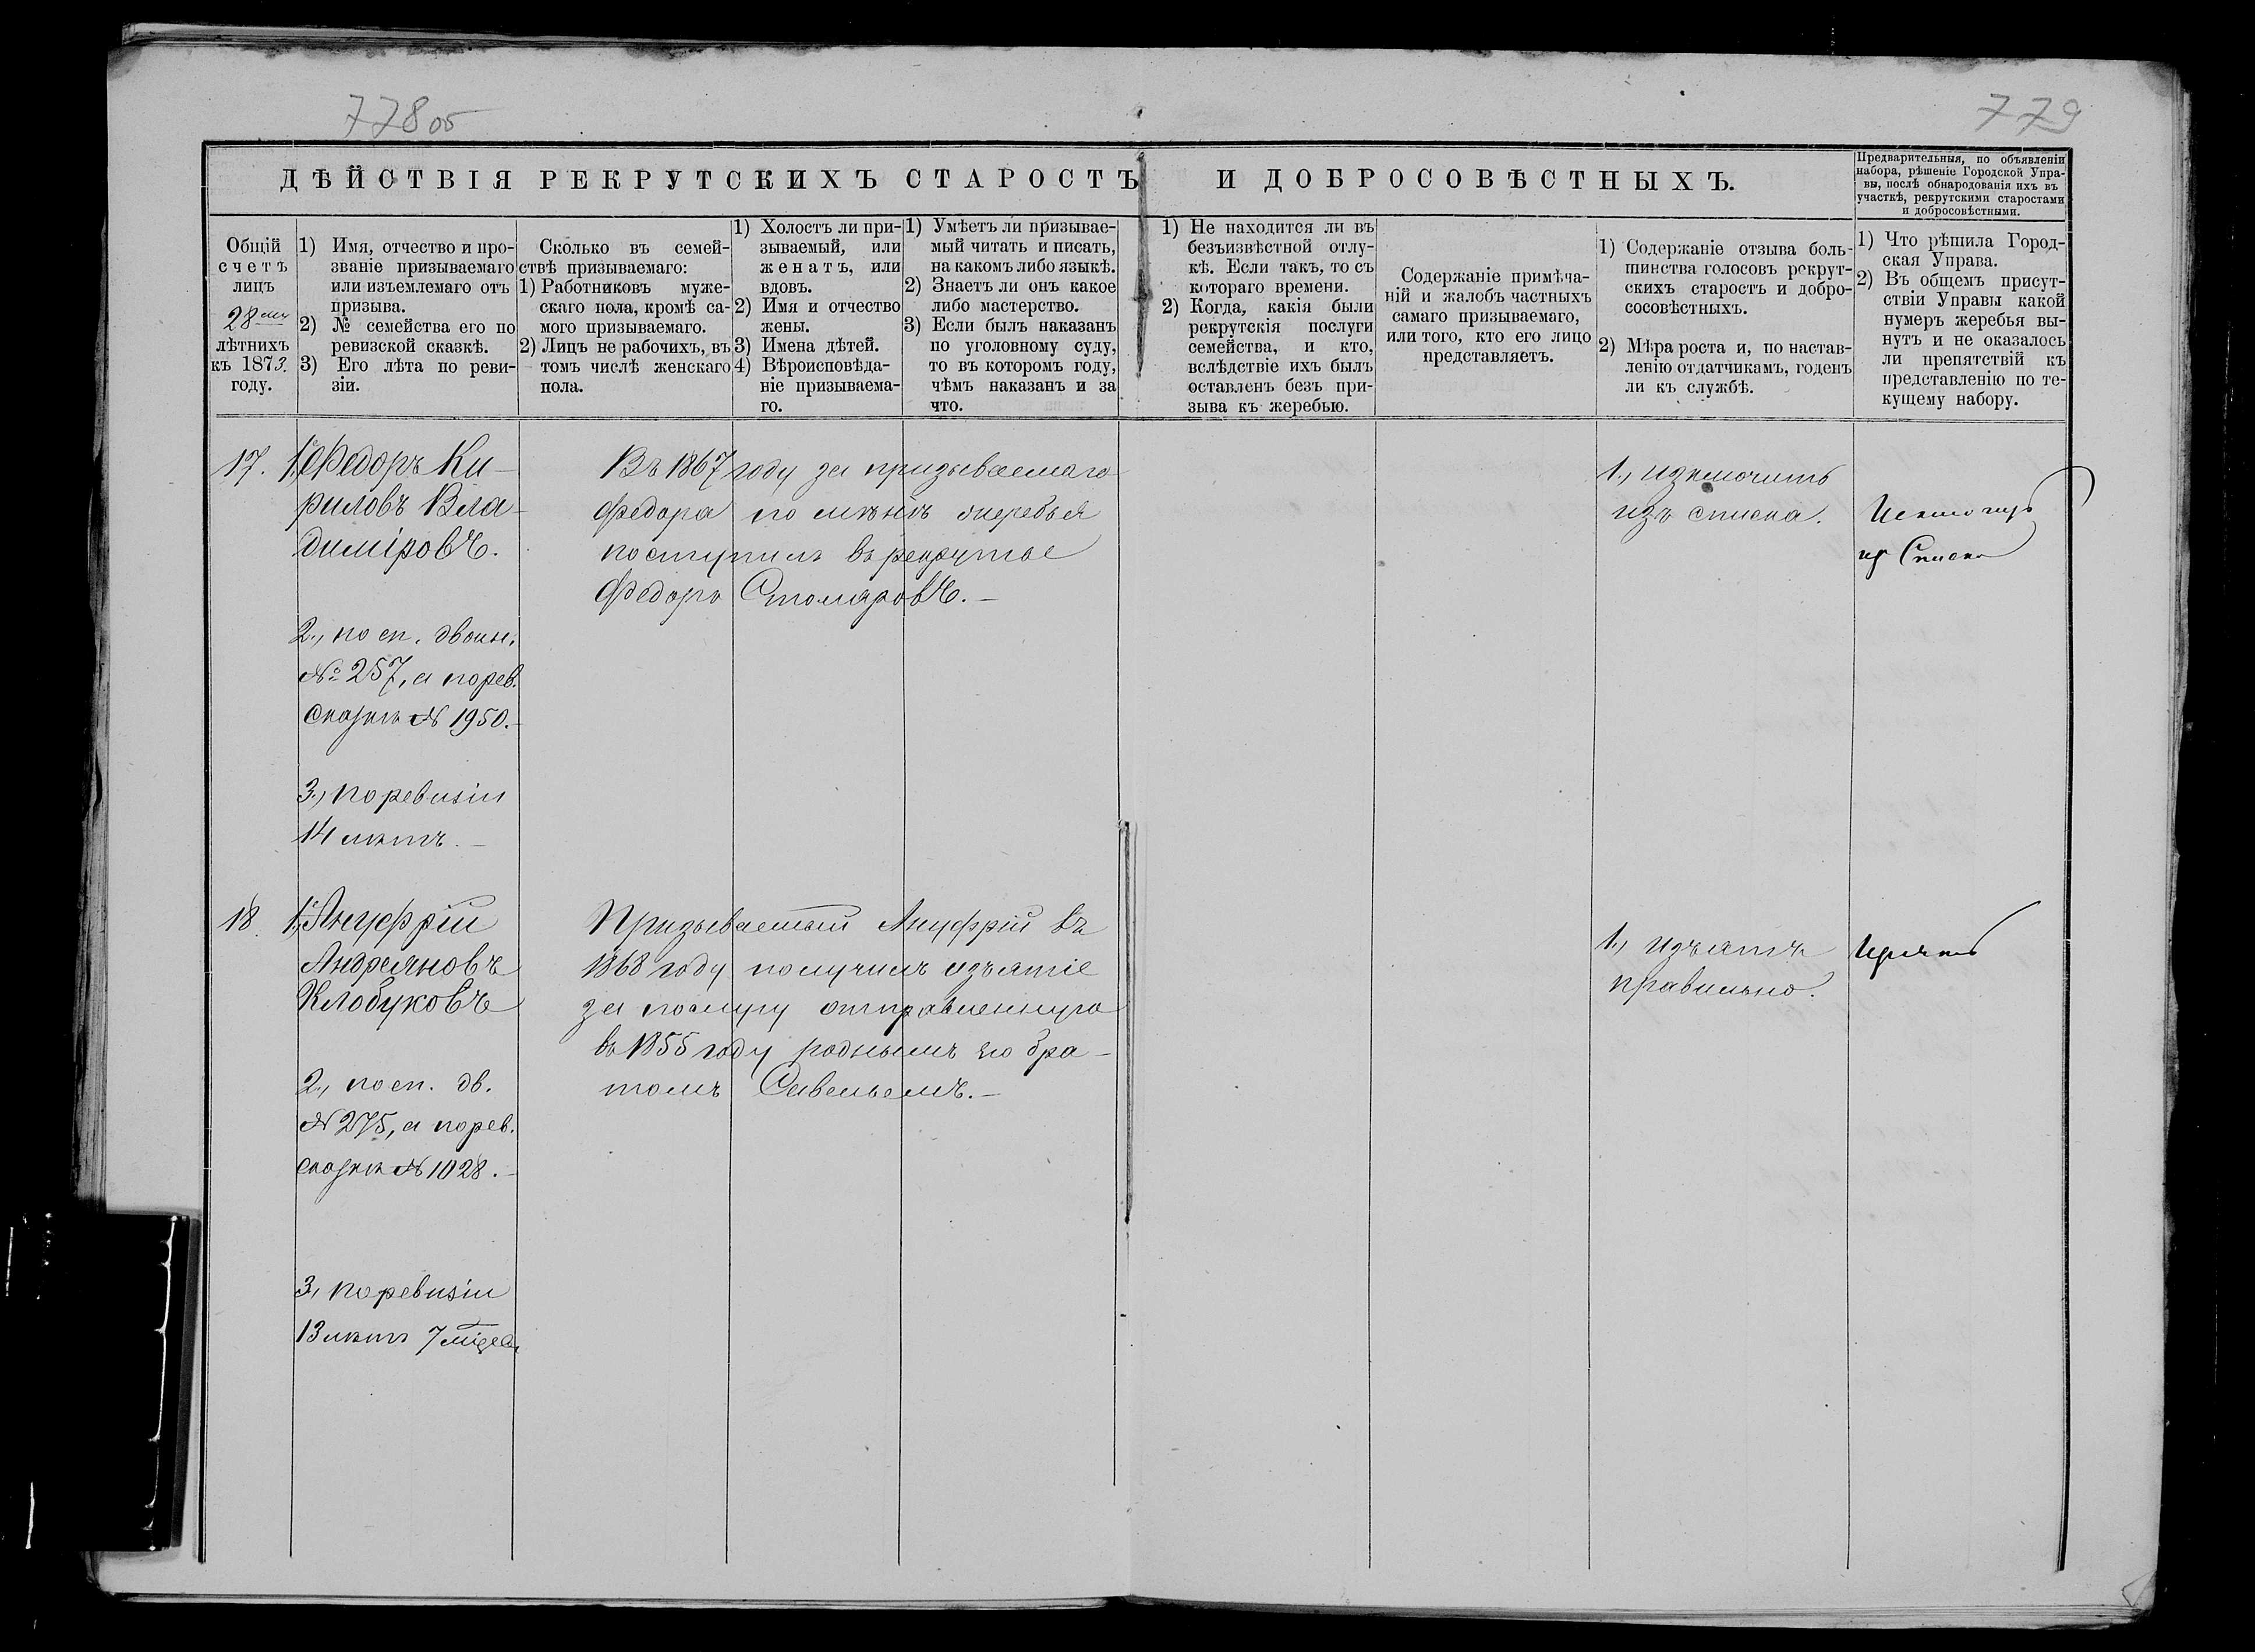 778 об
779
ДѢЙСТВІЯ РЕКРУТСКИХЪ СТАРОСТЪ И ДОБРОСОВѢСТНЫХЪ.
Предварительныя, по объявленіи
набора, рѣшеніе Городской Упра-
вы, послѣ обнародованія ихъ въ
участкѣ, рекрутскими старостами
и добросовѣстными.
Общій
счетъ
лицъ
28ми
лѣтнихъ
къ 1873.
году.
1) Имя, отчество и про-
званіе призываемаго
или изъемлемаго отъ
призыва.
2) № семейства его по
ревизской сказкѣ.
3) Его лѣта по реви-
зіи.
Сколько въ семей-
ствѣ призываемаго:
1) Работниковъ муже-
скаго пола, кромѣ са-
мого призываемаго.
2) Лицъ не рабочихъ, въ
томъ числѣ женскаго
пола.
1) Холостъ ли при-
зываемый, или
женатъ, или
вдовъ.
2) Имя и отчество
жены.
3) Имена дѣтей.
4) Вѣроисповѣда-
ніе призываема-
го.
1) Умѣетъ ли призывае-
мый читать и писать,
на какомъ либо языкѣ.
2) Знаетъ ли онъ какое
либо мастерство.
3) Если былъ наказанъ
по уголовному суду,
то въ которомъ году,
чѣмъ наказанъ и за
что.
1) Не находится ли въ
безъизвѣстной отлу-
кѣ. Если такъ, то съ
котораго времени.
2) Когда, какія были
рекрутскія послуги
семейства, и кто,
вслѣдствіе ихъ былъ
оставленъ безъ при-
зыва къ жеребью.
Содержаніе примѣча-
ній и жалобъ частныхъ
самаго призываемаго,
или того, кто его лицо
представляетъ.
1) Содержаніе отзыва боль-
шинства голосовъ рекрут-
скихъ старостъ и добро-
сосовѣстныхъ.
2) Мѣра роста и, по настав-
ленію отдатчикамъ, годенъ
ли къ службѣ.
1) Что рѣшила Город-
ская Управа.
2) Въ общемъ присут-
ствіи Управы какой
нумеръ жеребья вы-
нутъ и не оказалось
ли препятствій къ
представленію по те-
кущему набору.
17. 1, Федоръ Ки-
риловъ Вла-
диміровъ.
2., по сп. двоин.
№ 257, а по рев.
сказкѣ № 1950.-
3., по ревизіи
14 лѣтъ. -
Въ 1867 году за призываемаго
Федора по мѣнѣ жеребья
поступилъ въ рекрутые
Федоръ Столяровъ. -
1., изключить
изъ списка.
Исключить
из Списка
18. 1, Ануфрій
Андреяновъ
Клобуковъ
2., по сп. дв.
№ 275, а по рев.
сказкѣ № 1028. -
3, по ревизіи
13 лѣтъ 7 міся
Призываемый Ануфрій въ
1868 году получилъ изъятіе
за послугу отправленную
въ 1855 году роднымъ его бра-
томъ Савельемъ. -
1., изъятъ
правильно.